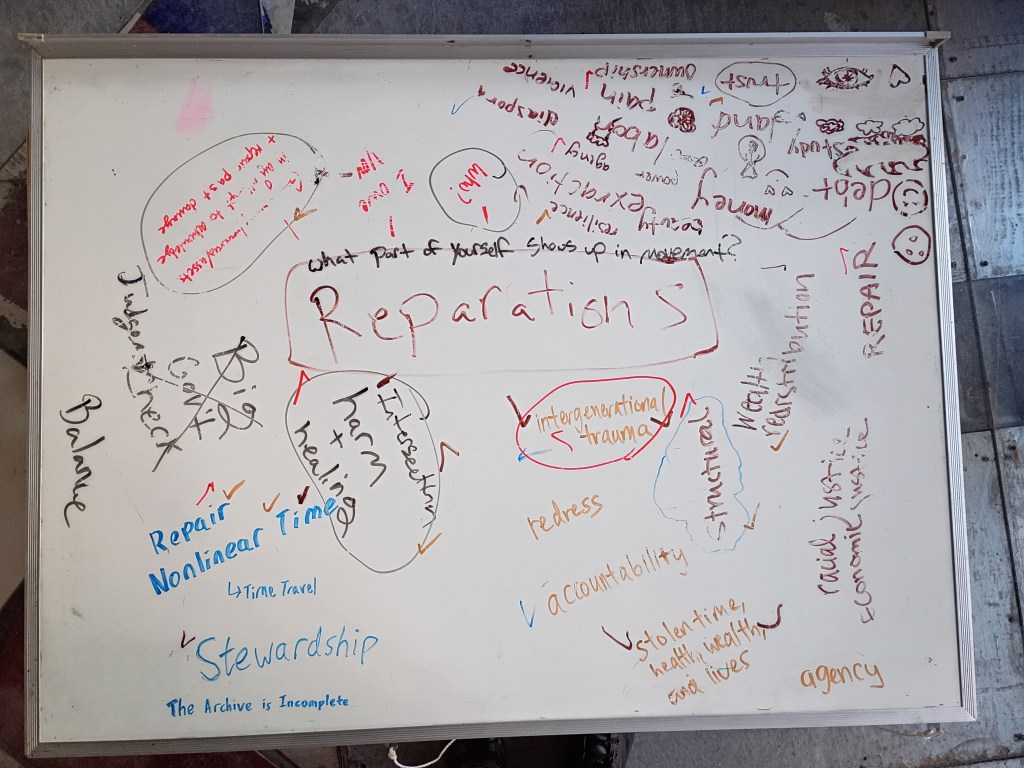 violence
ownership
trust
pain
diaspora
labor
land
study
aging
power
extraction
debt
money
resilience
beauty
Who?
I
owe
+ repair past damage
What part of yourself shows up in movement?
Reparations
REPAIR
wealth
redistribution
Big
Gov't
Balance
Intersection
harm
+
healing
intergenerational
trauma
structural
racial justice
Economic justice
redress
Repair
Nonlinear Time
↳Time Travel
accountability
stolen time,
health, wealth,
and lives
agency
Stewardship
The Archive is Incomplete